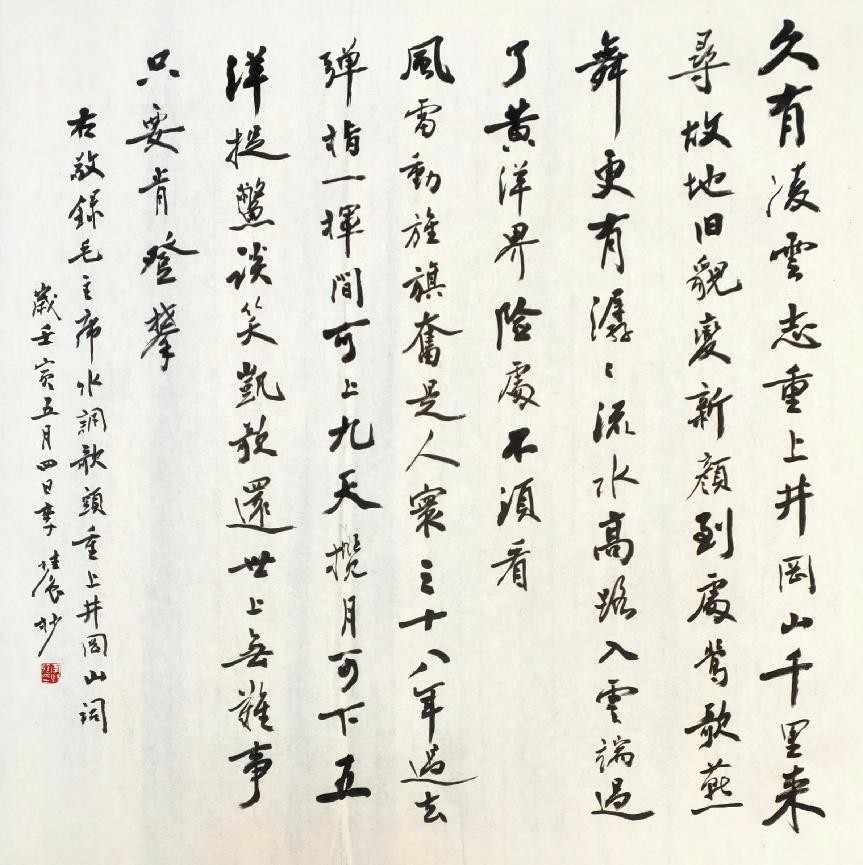 久有凌雲志重上井岡山千里来
尋故地旧貌變新顏到處鶯歌燕
舞更有潺〻流水高路入雲端過
了黄洋界险處不須看
風雷動旌旗奮是人寰三十八年過去
弹指一揮間可上九天攬月可下五
洋捉鱉談笑凱歌還世上無難事
只要肯登攀
右敬録毛主席水調歌頭重上井岡山詞
歲壬寅五月四日李抄